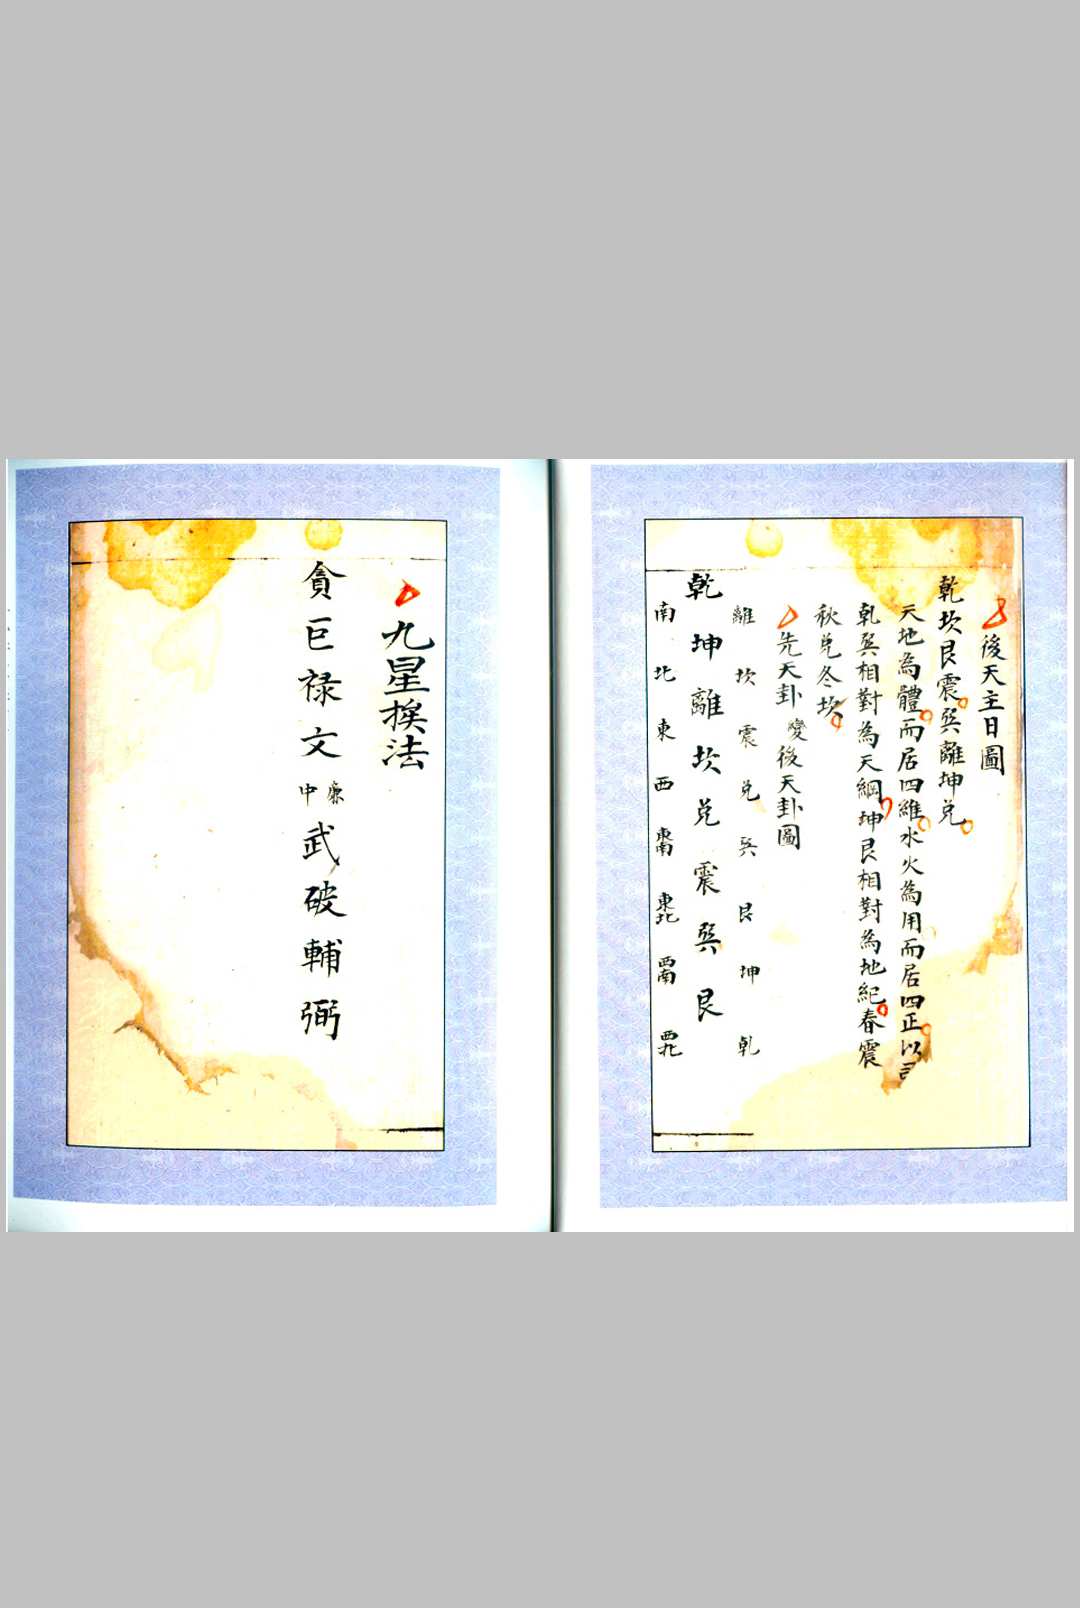 後天主日圖
乾坎艮震巽離坤兌
天地為體而居四維水火為用而居四正以
乾巽相對為天綱坤艮相對為地紀春震
秋兌冬坎
先天卦變後天卦圖
離坎震兌巽艮坤乾
乾坤離坎兌震巽艮
南北東西東南東北西南西北
九星挨法
貪巨祿文廉中武破輔弼